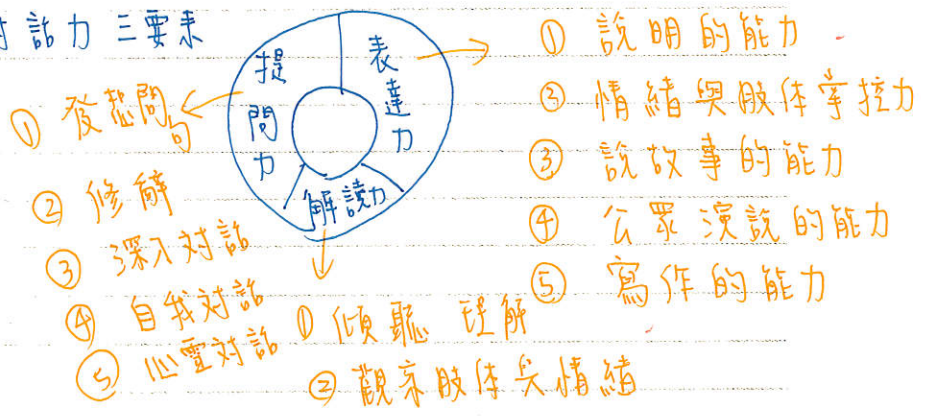 對話力 三要素
提問力
表達力
解讀力
① 發想問句
② 修辭
③ 深入對話
④ 自我對話
⑤ 心靈對話
① 說明的能力
② 情緒與肢体掌控力
③ 說故事的能力
④ 公眾演說的能力
⑤ 寫作的能力
① 傾聽 理解
② 觀察肢体与情緒